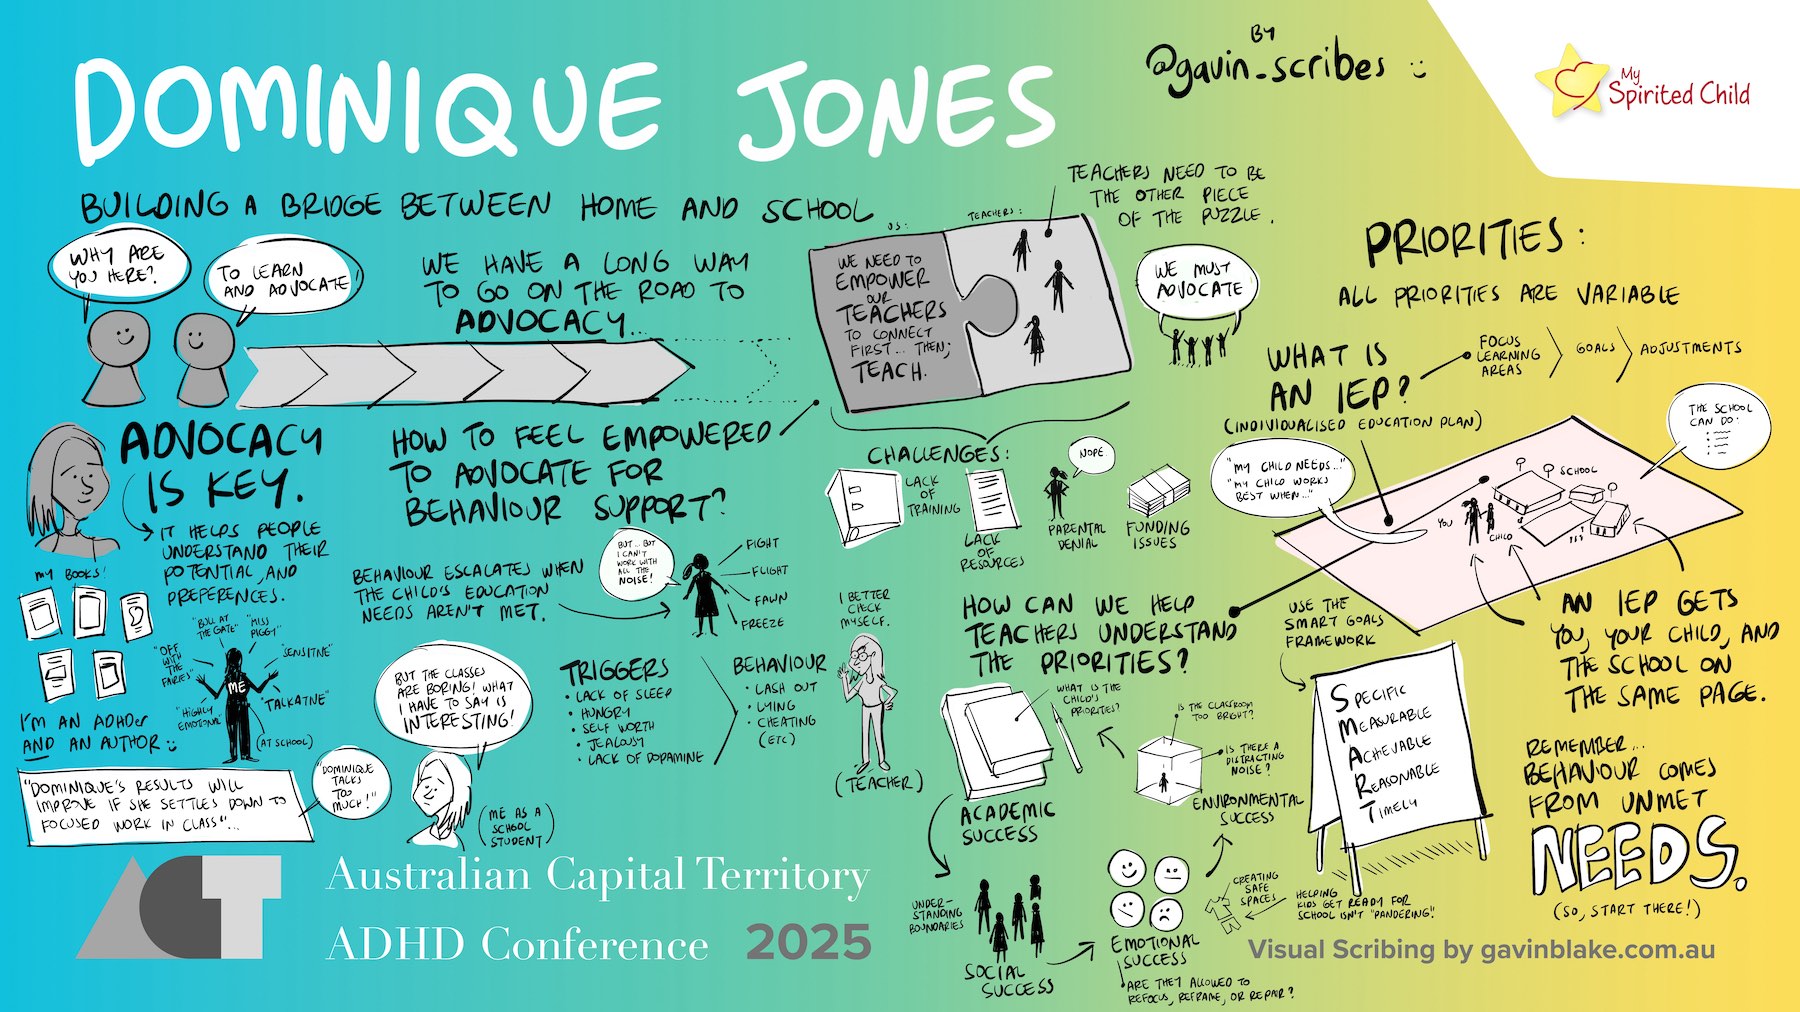 DOMINIQUE JONES
BY
@gavin_scribes
My
Spirited Child
BUILDING A BRIDGE BETWEEN HOME AND SCHOOL
WHY ARE
YOU HERE?
TO LEARN
AND ADVOCATE!
WE HAVE A LONG WAY
TO GO ON THE ROAD TO
ADVOCACY...
US:
TEACHERS:
WE NEED TO
EMPOWER
OUR
TEACHERS
TO CONNECT
FIRST... THEN;
TEACH.
TEACHERS NEED TO BE
THE OTHER PIECE
OF THE PUZZLE.
WE MUST
ADVOCATE
ADVOCACY
IS KEY.
IT HELPS PEOPLE
UNDERSTAND THEIR
POTENTIAL, AND
PREFERENCES.
MY BOOKS!
"BULL AT
THE GATE"
"MISS
PIGGY"
"OFF
WITH
THE
FAIRIES"
"SENSITIVE"
ME
"HIGHLY
EMOTIONAL"
"TALKATIVE"
(AT SCHOOL)
I'M AN ADHDer
AND AN AUTHOR
"DOMINIQUE'S RESULTS WILL
IMPROVE IF SHE SETTLES DOWN TO
FOCUSED WORK IN CLASS"...
"DOMINIQUE
TALKS
TOO
MUCH!"
HOW TO FEEL EMPOWERED
TO ADVOCATE FOR
BEHAVIOUR SUPPORT?
BEHAVIOUR ESCALATES WHEN
THE CHILD'S EDUCATION
NEEDS AREN'T MET.
BUT... BUT
I CAN'T
WORK WITH
ALL THE
NOISE!
FIGHT
FLIGHT
FAWN
FREEZE
BUT THE CLASSES
ARE BORING! WHAT
I HAVE TO SAY IS
INTERESTING!
(ME AS A
SCHOOL
STUDENT)
TRIGGERS
• LACK OF SLEEP
• HUNGRY
• SELF WORTH
• JEALOUSY
• LACK OF DOPAMINE
BEHAVIOUR
• LASH OUT
• LYING
• CHEATING
(ETC)
I BETTER
CHECK
MYSELF.
(TEACHER)
CHALLENGES:
LACK
OF
TRAINING
LACK
OF
RESOURCES
NOPE.
PARENTAL
DENIAL
FUNDING
ISSUES
HOW CAN WE HELP
TEACHERS UNDERSTAND
THE PRIORITIES?
WHAT IS THE
CHILD'S
PRIORITIES?
ACADEMIC
SUCCESS
UNDER-
STANDING
BOUNDARIES
SOCIAL
SUCCESS
EMOTIONAL
SUCCESS
ARE THEY ALLOWED TO
REFOCUS, REFRAME, OR REPAIR?
IS THE CLASSROOM
TOO BRIGHT?
IS THERE A
DISTRACTING
NOISE?
ENVIRONMENTAL
SUCCESS
CREATING
SAFE
SPACES
HELPING
KIDS GET READY FOR
SCHOOL ISN'T "PANDERING"!
PRIORITIES:
ALL PRIORITIES ARE VARIABLE
WHAT IS
AN IEP?
(INDIVIDUALISED EDUCATION PLAN)
FOCUS
LEARNING
AREAS
GOALS
ADJUSTMENTS
"MY CHILD NEEDS..."
"MY CHILD WORKS
BEST WHEN..."
THE SCHOOL
CAN DO:
SCHOOL
YOU
CHILD
USE THE
SMART GOALS
FRAMEWORK
SPECIFIC
MEASURABLE
ACHIEVABLE
REASONABLE
TIMELY
AN IEP GETS
YOU, YOUR CHILD, AND
THE SCHOOL ON
THE SAME PAGE.
REMEMBER...
BEHAVIOUR COMES
FROM UNMET
NEEDS.
(SO, START THERE!)
ACT
Australian Capital Territory
ADHD Conference 2025
Visual Scribing by gavinblake.com.au